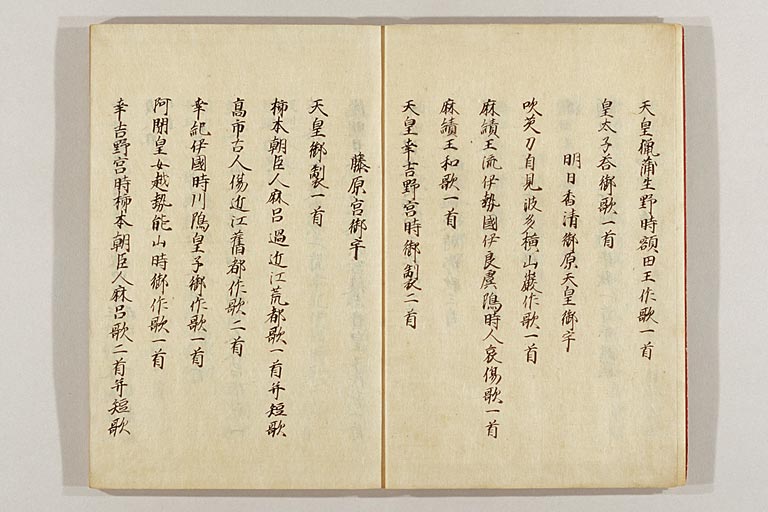 天皇猟蒲生野時額田王作歌一首
皇太子答御歌一首
明日香清御原天皇御宇
吹芡刀自見波多横山巌作歌一首
麻績王流伊勢國伊良虞隝時人哀傷歌一首
麻績王和歌一首
天皇幸吉野宮時御製二首
藤原宮御宇
天皇御製一首
柿本朝臣人麻呂過近江荒都歌一首并短歌
高市古人傷近江舊都作歌二首
幸紀伊國時川隝皇子御作歌一首
阿閇皇女越勢能山時御作歌一首
幸吉野宮時柿本朝臣人麻呂歌二首并短歌